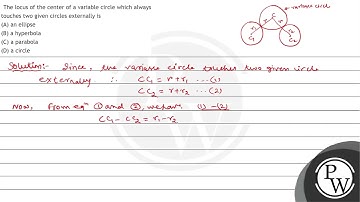 The locus of the center of a variable circle which always
touches two given circles externally is
(A) an ellipse
(B) a hyperbola
(C) a parabola
(D) a circle
variable circle
r C r
r₁ r₂
C₁ C₂
Solution:- Since, the variable circle touches two given circle
externally ∴ CC₁ = r + r₁ ...(1)
CC₂ = r + r₂ ...(2)
Now, from eqⁿ ① and ②, we have (1) - (2)
CC₁ - CC₂ = r₁ - r₂
PW